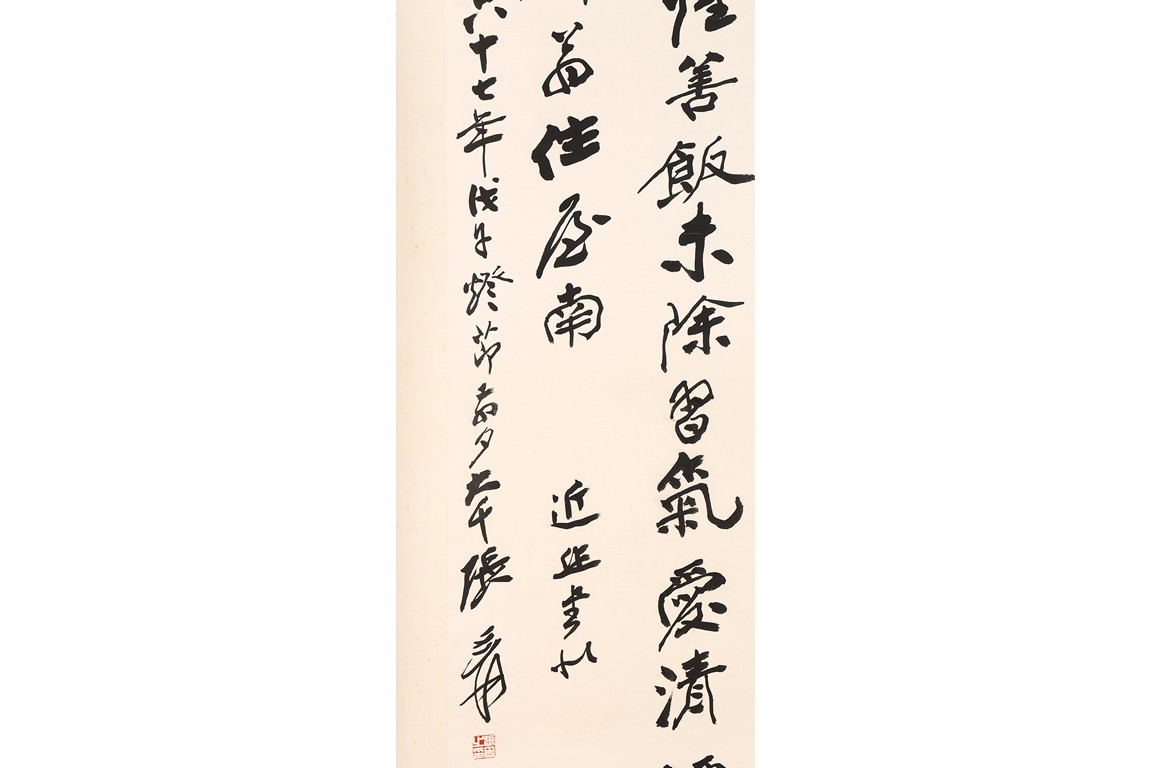 善飯未除習氣愛清
翁住屋南
近作書於
六十七年戊午燈節前夕大千張爰